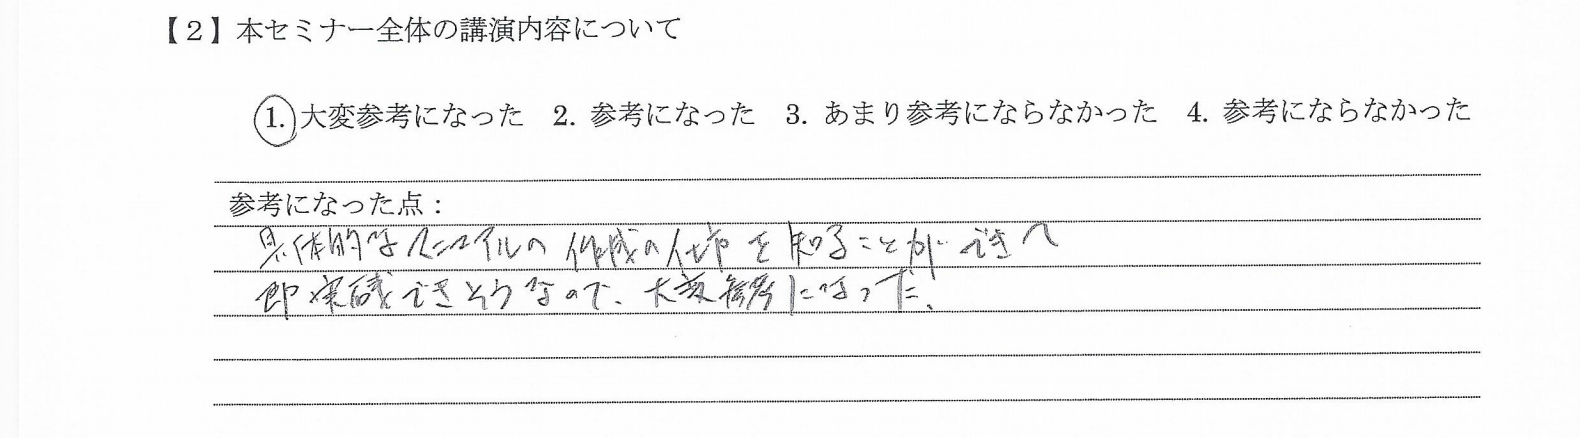 【2】本セミナー全体の講演内容について
1. 大変参考になった 2. 参考になった 3. あまり参考にならなかった 4. 参考にならなかった
参考になった点：
具体的なマニュアルの作成の仕方を知ることができて
即実践できそうなので、大変参考になった。